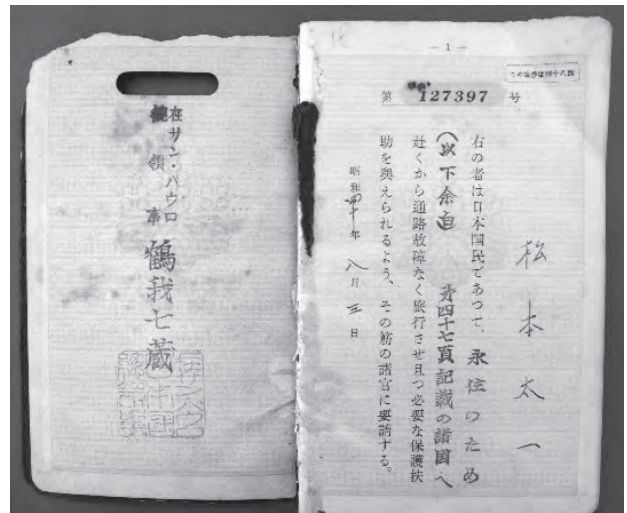 18
- 1 -
この旅券は四十八頁
第 127397 号
松本太一
右の者は日本国民であつて、永住のため
(以下余白 第四十七頁記載の諸国へ
赴くから通路故障なく旅行させ且つ必要な保護扶
助を與えられるよう、その筋の諸官に要請する。
昭和四十年八月三日
在サン・パウロ
総領事 鶴我七蔵